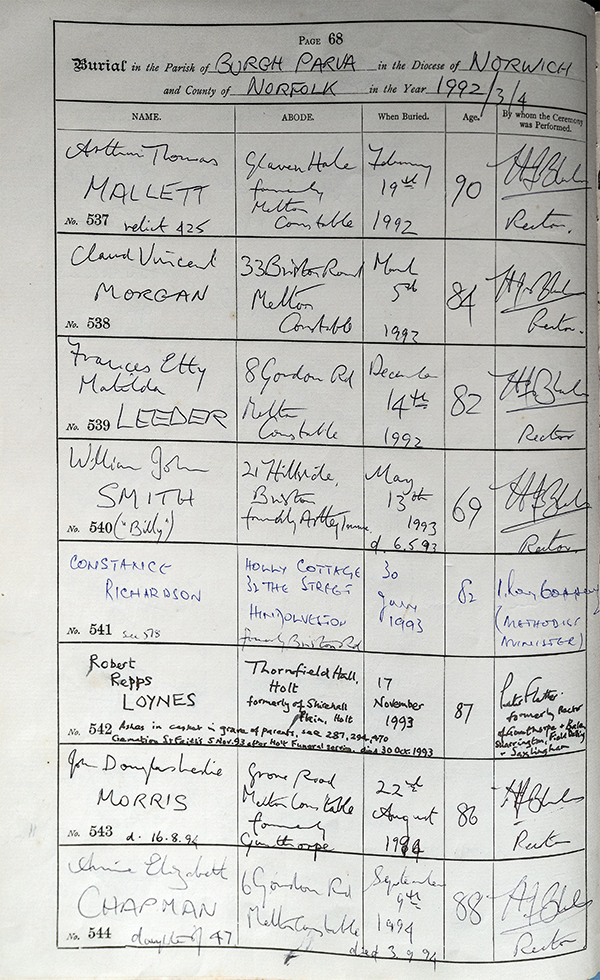 PAGE 68
Burial in the Parish of BURGH PARVA in the Diocese of NORWICH
and County of NORFOLK in the Year 1992/3/4
NAME. ABODE. When Buried. Age. By whom the Ceremony was Performed.
Arthur Thomas
MALLETT
No. 537 relict 425
Glaven Hale
formerly
Melton
Constable
February
19th
1992
90
Rector.
Claud Vincent
MORGAN
No. 538
33 Briston Road
Melton
Constable
March
5th
1992
84
Rector.
Frances Etty
Matilda
No. 539 LEEDER
8 Gordon Rd
Melton
Constable
December
14th
1992
82
Rector
William John
SMITH
No. 540 ("Billy")
21 Hillside,
Briston
formerly Astley
May
13th
1993
d. 6.5.93
69
Rector
CONSTANCE
RICHARDSON
No. 541 see 578
HOLLY COTTAGE
32 THE STREET
HINDOLVESTON
formerly Briston Rd
30
1993
82
(METHODIST
MINISTER)
Robert
Repps
LOYNES
No. 542 Ashes in casket in grave of parents, see 287, 294, 470
Cremation St Faith's 5 Nov. 93 after Holt Funeral service. died 30 Oct. 1993
Thornfield Hall,
Holt
formerly of Shirehall
Plain, Holt
17
November
1993
87
formerly Rector
of Gunthorpe + Bale
Sharrington, Field Dalling
+ Saxlingham
John Douglas Leslie
MORRIS
No. 543 d. 16.8.94
Grove Road
Melton Constable
formerly
Gunthorpe
22nd
August
1994
86
Rector
Annie Elizabeth
CHAPMAN
No. 544 daughter of 47
6 Gordon Rd
Melton Constable
September
9th
1994
died 3.9.94
88
Rector